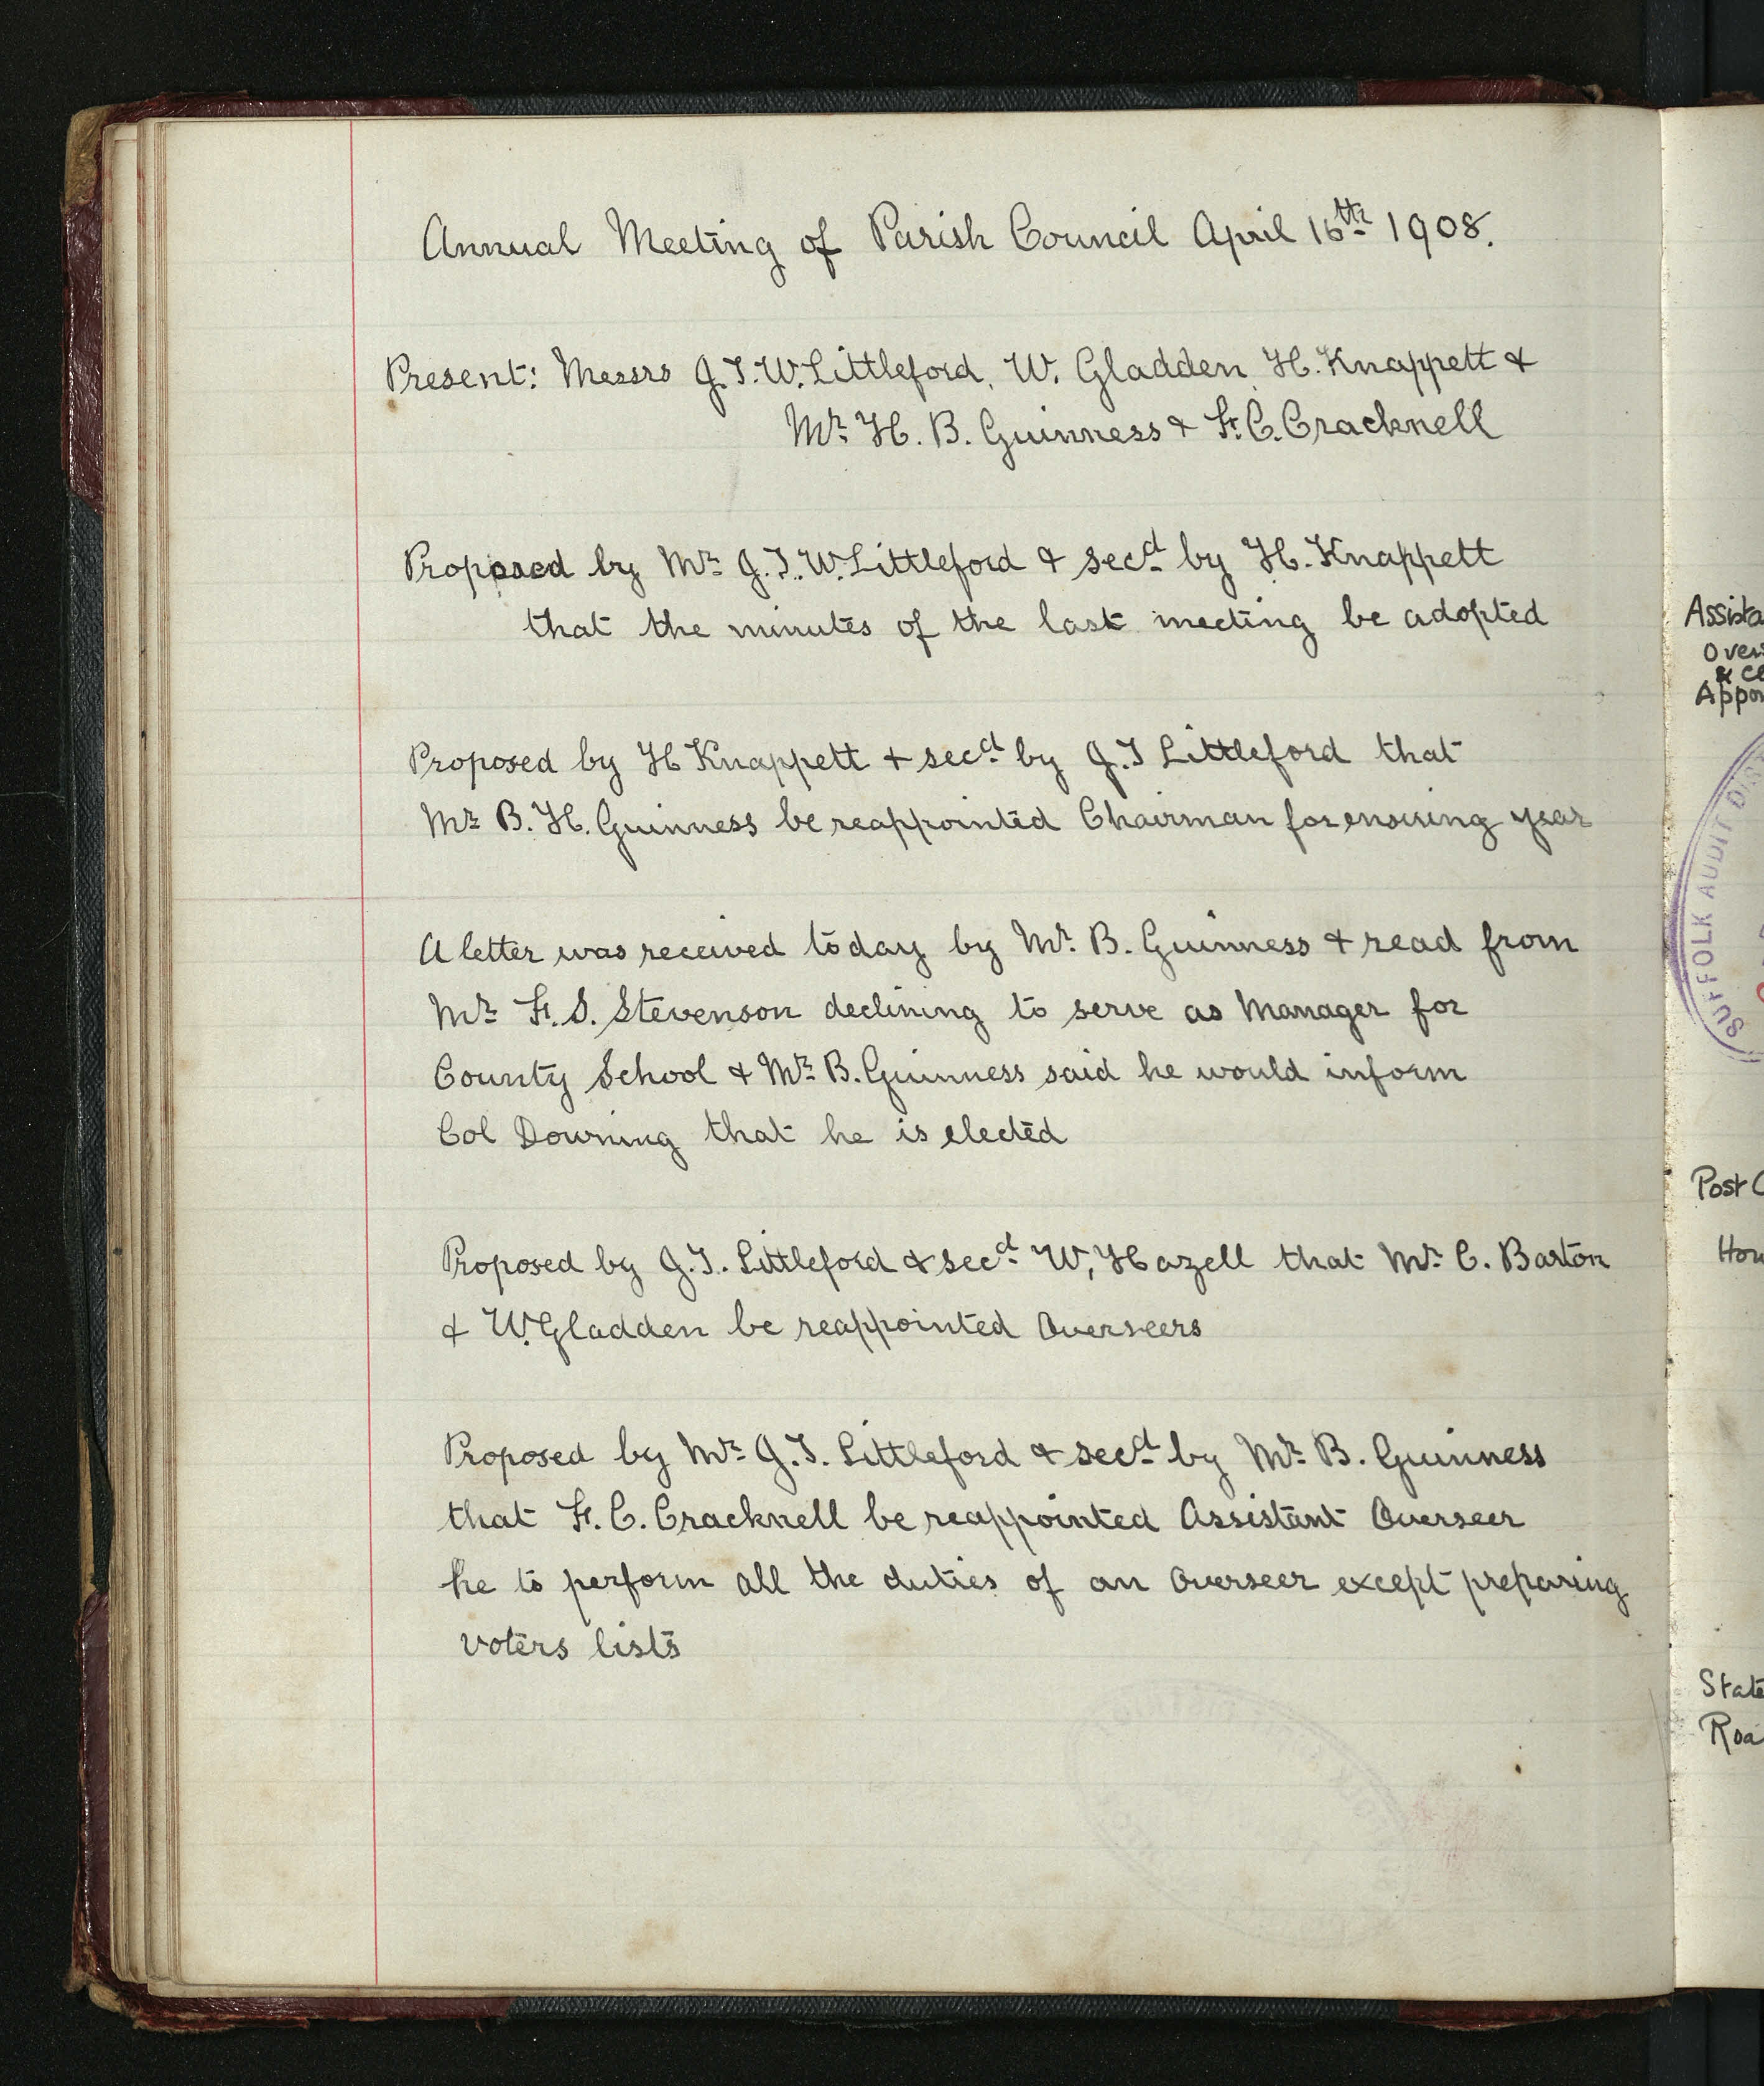 Annual Meeting of Parish Council April 16th 1908.
Present: Messrs G.T.W. Littleford, W. Gladden, H. Knappett &
Mr H. B. Guinness & F. C. Cracknell
Proposed by Mr G.T.W. Littleford & secd by H. Knappett
that the minutes of the last meeting be adopted
Proposed by H Knappett & secd by G.T Littleford that
Mr B. H. Guinness be reappointed Chairman for ensuing year
A letter was received today by Mr. B. Guinness & read from
Mr F. S. Stevenson declining to serve as Manager for
County School & Mr B. Guinness said he would inform
Col Downing that he is elected
Proposed by G.T. Littleford & secd W, Hazell that Mr C. Barton
& W. Gladden be reappointed Overseers
Proposed by Mr G.T. Littleford & secd by Mr B. Guinness
that F. C. Cracknell be reappointed Assistant Overseer
he to perform all the duties of an Overseer except preparing
voters lists
Assista
Overs
& Cl
Appo
SUFFOLK AUDIT
Post
How
State
Roa